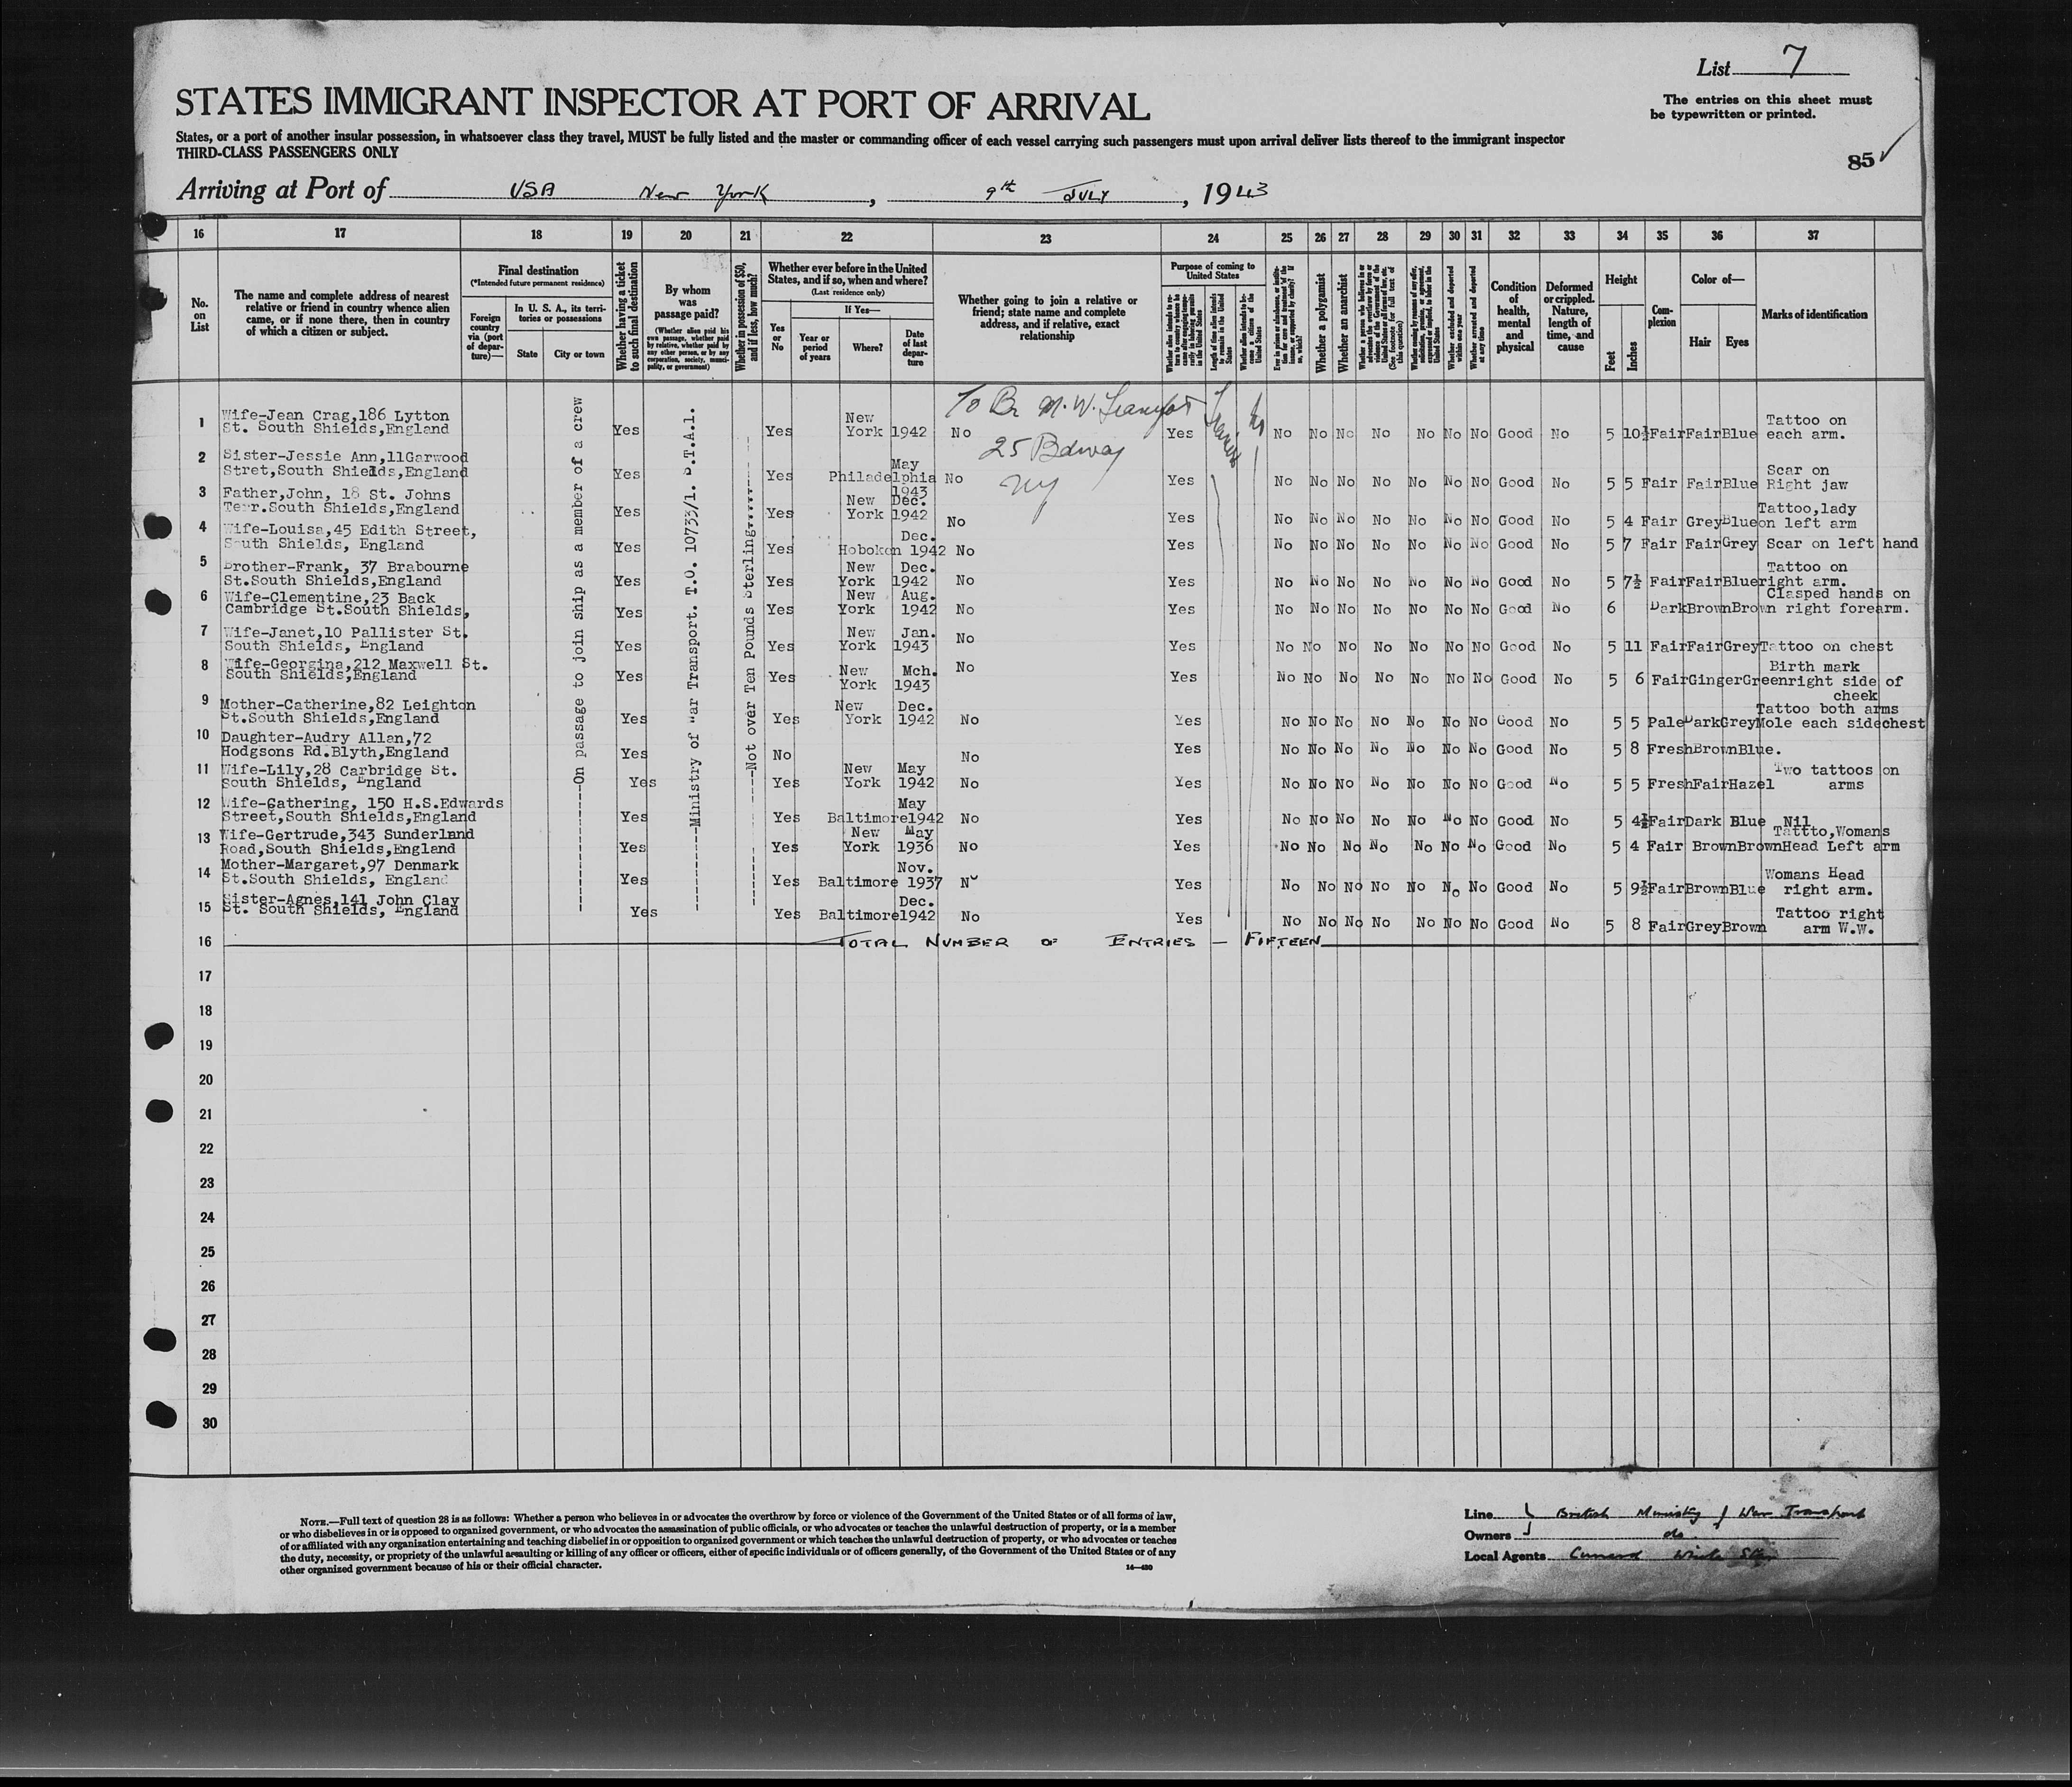 List 7
STATES IMMIGRANT INSPECTOR AT PORT OF ARRIVAL
The entries on this sheet must
be typewritten or printed.
States, or a port of another insular possession, in whatsoever class they travel, MUST be fully listed and the master or commanding officer of each vessel carrying such passengers must upon arrival deliver lists thereof to the immigrant inspector
THIRD-CLASS PASSENGERS ONLY
85 ✓
Arriving at Port of USA New York, 9th July, 1943
16 17 18 19 20 21 22 23 24 25 26 27 28 29 30 31 32 33 34 35 36 37
No. on List
The name and complete address of nearest relative or friend in country whence alien came, or if none there, then in country of which a citizen or subject.
Final destination
(*Intended future permanent residence)
Foreign country via (port of departure)—
In U. S. A., its territories or possessions
State
City or town
Whether having a ticket to such final destination
By whom was passage paid?
(Whether alien paid his own passage, whether paid by relative, whether paid by any other person, or by any corporation, society, municipality, or government)
Whether in possession of $50, and if less, how much?
Whether ever before in the United States, and if so, when and where?
(Last residence only)
Yes or No
If Yes—
Year or period of years
Where?
Date of last departure
Whether going to join a relative or friend; state name and complete address, and if relative, exact relationship
Purpose of coming to United States
Length of time alien intends to remain in the United States
Whether alien intends to become a citizen of the United States
Whether a polygamist
Whether an anarchist
Whether excluded and deported within one year
Whether arrested and deported at any time
Condition of health, mental and physical
Deformed or crippled. Nature, length of time, and cause
Height
Feet
Inches
Complexion
Color of—
Hair
Eyes
Marks of identification
-On passage to join ship as a member of a crew
-Ministry of War Transport. T.O. 10733/1. D.T.A.1.
-Not over Ten Pounds Sterling
To Br M.W.
25 Bdway
NY
No
1 Wife-Jean Crag,186 Lytton St. South Shields,England Yes Yes New York 1942 No Yes No No No No No No No Good No 5 10½ Fair Fair Blue Tattoo on each arm.
2 Sister-Jessie Ann,11Garwood Stret,South Shields,England Yes Yes Philadelphia May 1943 No Yes No No No No No No No Good No 5 5 Fair Fair Blue Scar on Right jaw
3 Father,John, 18 St. Johns Terr.South Shields,England Yes Yes New York Dec. 1942 No Yes No No No No No No No Good No 5 4 Fair Grey Blue Tattoo,lady on left arm
4 Wife-Louisa,45 Edith Street, South Shields, England Yes Yes Hoboken Dec. 1942 No Yes No No No No No No No Good No 5 7 Fair Fair Grey Scar on left hand
5 Brother-Frank, 37 Brabourne St.South Shields,England Yes Yes New York Dec. 1942 No Yes No No No No No No No Good No 5 7½ Fair Fair Blue Tattoo on right arm.
6 Wife-Clementine,23 Back Cambridge St.South Shields, Yes Yes New York Aug. 1942 No Yes No No No No No No No Good No 6 Dark Brown Brown Clasped hands on right forearm.
7 Wife-Janet,10 Pallister St. South Shields, England Yes Yes New York Jan. 1943 No Yes No No No No No No No Good No 5 11 Fair Fair Grey Tattoo on chest
8 Wife-Georgina,212 Maxwell St. South Shields,England Yes Yes New York Mch. 1943 No Yes No No No No No No No Good No 5 6 Fair Ginger Green Birth mark right side of cheek
9 Mother-Catherine,82 Leighton St.South Shields,England Yes Yes New York Dec. 1942 No Yes No No No No No No No Good No 5 5 Pale Dark Grey Tattoo both arms Mole each side chest
10 Daughter-Audry Allan,72 Hodgsons Rd.Blyth,England Yes No No Yes No No No No No No No Good No 5 8 Fresh Brown Blue.
11 Wife-Lily,28 Carbridge St. South Shields, England Yes Yes New York May 1942 No Yes No No No No No No No Good No 5 5 Fresh Fair Hazel Two tattoos on arms
12 Wife-Gathering, 150 H.S.Edwards Street,South Shields,England Yes Yes Baltimore May 1942 No Yes No No No No No No No Good No 5 4½ Fair Dark Blue Nil
13 Wife-Gertrude,343 Sunderland Road,South Shields,England Yes Yes New York May 1936 No Yes No No No No No No No Good No 5 4 Fair Brown Brown Tattto,Womans Head Left arm
14 Mother-Margaret,97 Denmark St.South Shields, England Yes Yes Baltimore Nov. 1937 No Yes No No No No No No No Good No 5 9½ Fair Brown Blue Womans Head right arm.
15 Sister-Agnes,141 John Clay St. South Shields, England Yes Yes Baltimore Dec. 1942 No Yes No No No No No No No Good No 5 8 Fair Grey Brown Tattoo right arm W.W.
16 TOTAL NUMBER OF ENTRIES — FIFTEEN
17
18
19
20
21
22
23
24
25
26
27
28
29
30
NOTE.—Full text of question 28 is as follows: Whether a person who believes in or advocates the overthrow by force or violence of the Government of the United States or of all forms of law,
or who disbelieves in or is opposed to organized government, or who advocates the assassination of public officials, or who advocates or teaches the unlawful destruction of property, or is a member
of or affiliated with any organization entertaining and teaching disbelief in or opposition to organized government or which teaches the unlawful destruction of property, or who advocates or teaches
the duty, necessity, or propriety of the unlawful assaulting or killing of any officer or officers, either of specific individuals or of officers generally, of the Government of the United States or of any
other organized government because of his or their official character.
14—430
Line British Ministry of War Transport
Owners do.
Local Agents Cunard White Star